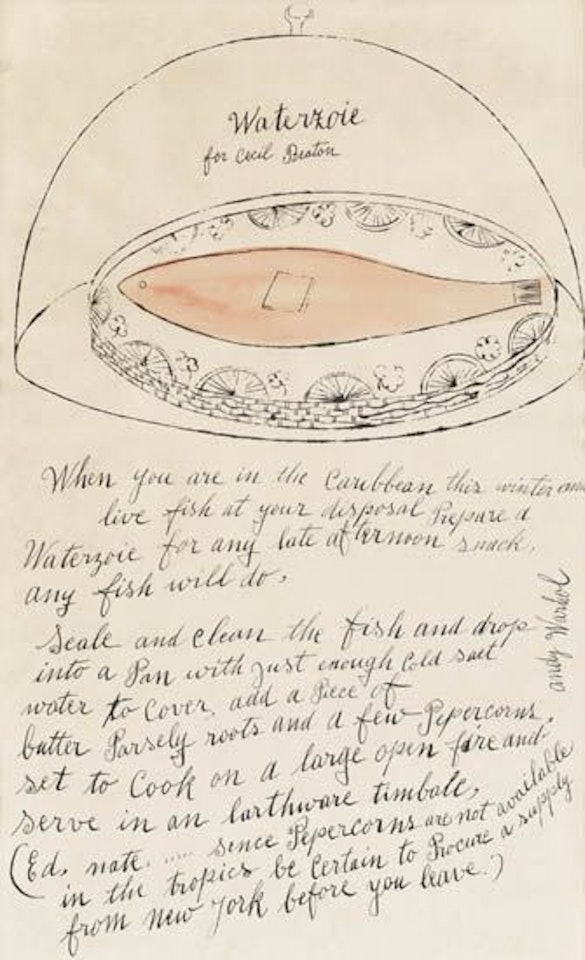 Waterzoie
for Cecil Beaton
When you are in the Caribbean this winter
live fish at your disposal Prepare a
Waterzoie for any late afternoon snack.
any fish will do.
Scale and clean the fish and drop
into a Pan with just enough Cold salt
water to Cover, add a Piece of
butter Parsely roots and a few Pepercorns,
set to Cook on a large open fire and
serve in an earthware timbale,
(Ed. nate. ..... sence Pepercorns are not available
in the tropics be Certain to Procure a supply
from new York before you leave.)
andy Warhol